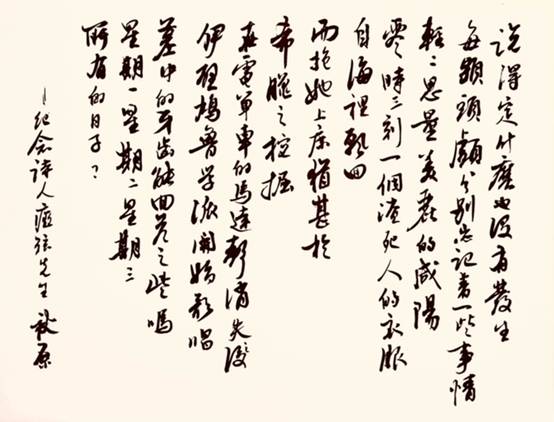 說得定什麼也沒有發生
每顆頭顱分別忘記著一些事情
輕輕思量美麗的咸陽
零時三刻一個淹死人的衣服
自海裡飄回
而抱她上床猶甚於
希臘之挖掘
在電單車的馬達聲消失後
伊壁鳩魯學派開始歌唱
墓中的牙齒能回答這些嗎
星期一星期二星期三
所有的日子?
—紀念詩人瘂弦先生